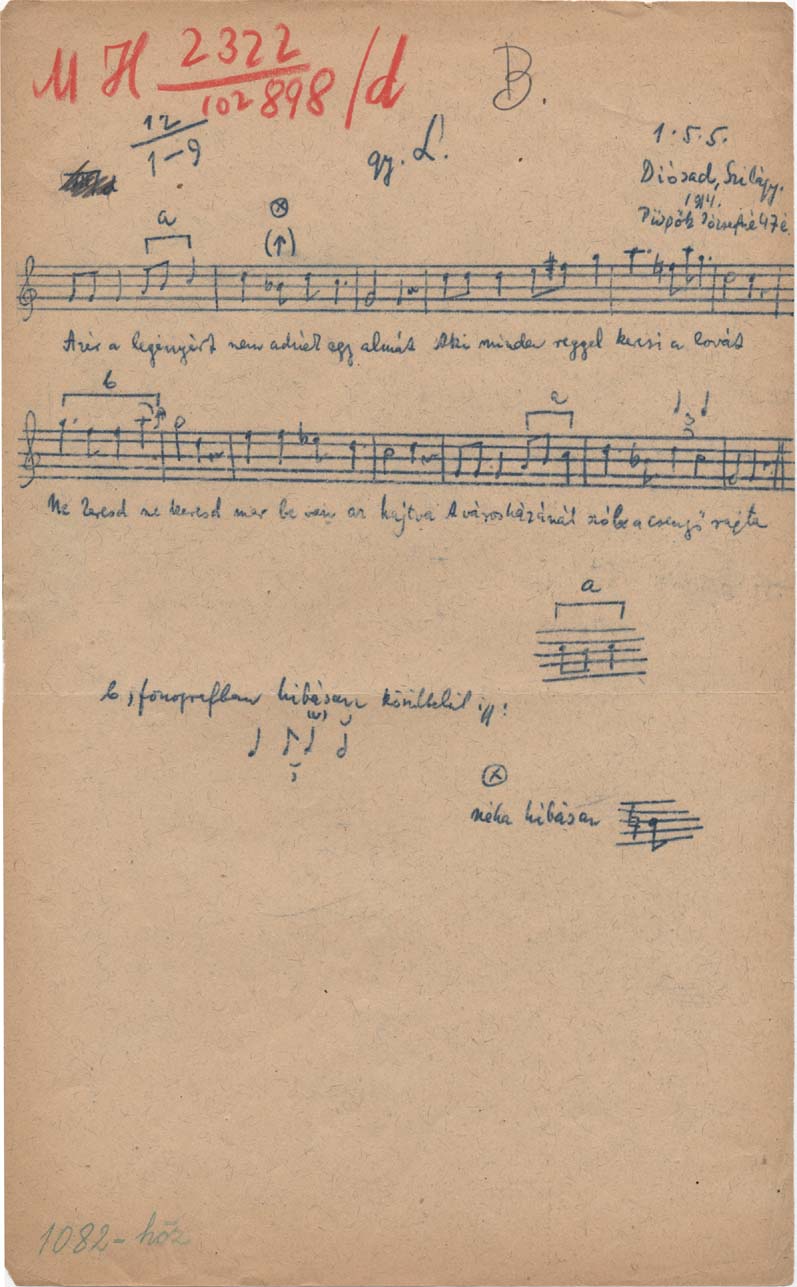 MH 2322 / 102898 /d
B.
12 / 1-9
gy. L.
1.5.5.
Diósad, Szilágy.
1914.
Püspök Józsefné 47 é.
a
(↑)
Azér a legényért nem adnék egy almát Aki minden reggel keresi a lovát
b
a
Ne keresd ne keresd mer be van az hajtva A városházánál szól a csengő rajta
a
b, fonografban hibásan így:
néha hibásan
1082-höz